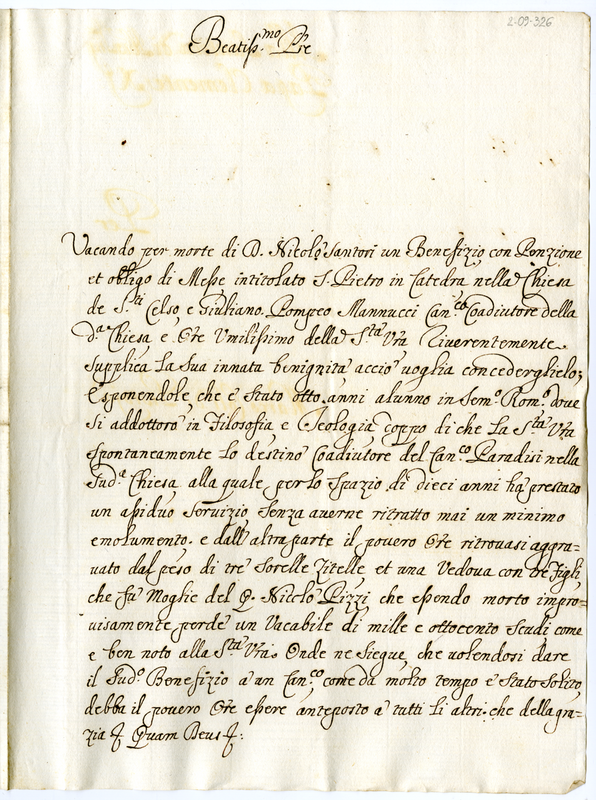 2-09-326
Beatiss.mo Pre
Vacando per morte di D. Nicolò Santori un Benefizio con Penzione
et obligo di Messe intitolato S. Pietro in Catedra nella Chiesa
de S.ti Celso e Giuliano. Pompeo Mannucci Can.co Coadiutore della
d.a Chiesa e Ore Umilissimo della S.tà Vra riverentemente
supplica la sua innata benignità acciò voglia concederglielo;
Esponendole che è stato otto anni alunno in Sem.o Rom.o dove
si addottorò in Filosofia e Teologia doppo di che la S.tà Vra
spontaneamente lo destinò Coadiutore del Can.co Paradisi nella
sud.a Chiesa alla quale per lo spazio di dieci anni ha prestato
un assiduo servizio senza averne ritratto mai un minimo
emolumento. e dall'altra parte il povero Ore ritrovasi aggra=
vato dal peso di tre sorelle zitelle et una Vedova con tre figli
che fù Moglie del q. Nicolò Pizzi che essendo morto impro=
visamente perdè un Vacabile di mille e ottocento scudi come
è ben noto alla S.tà Vra. Onde ne siegue, che volendosi dare
il sud.o Benefizio a un Can.co come da molto tempo è stato solito,
debba il povero Ore essere anteposto a tutti li altri. che della gra=
zia Quam Deus